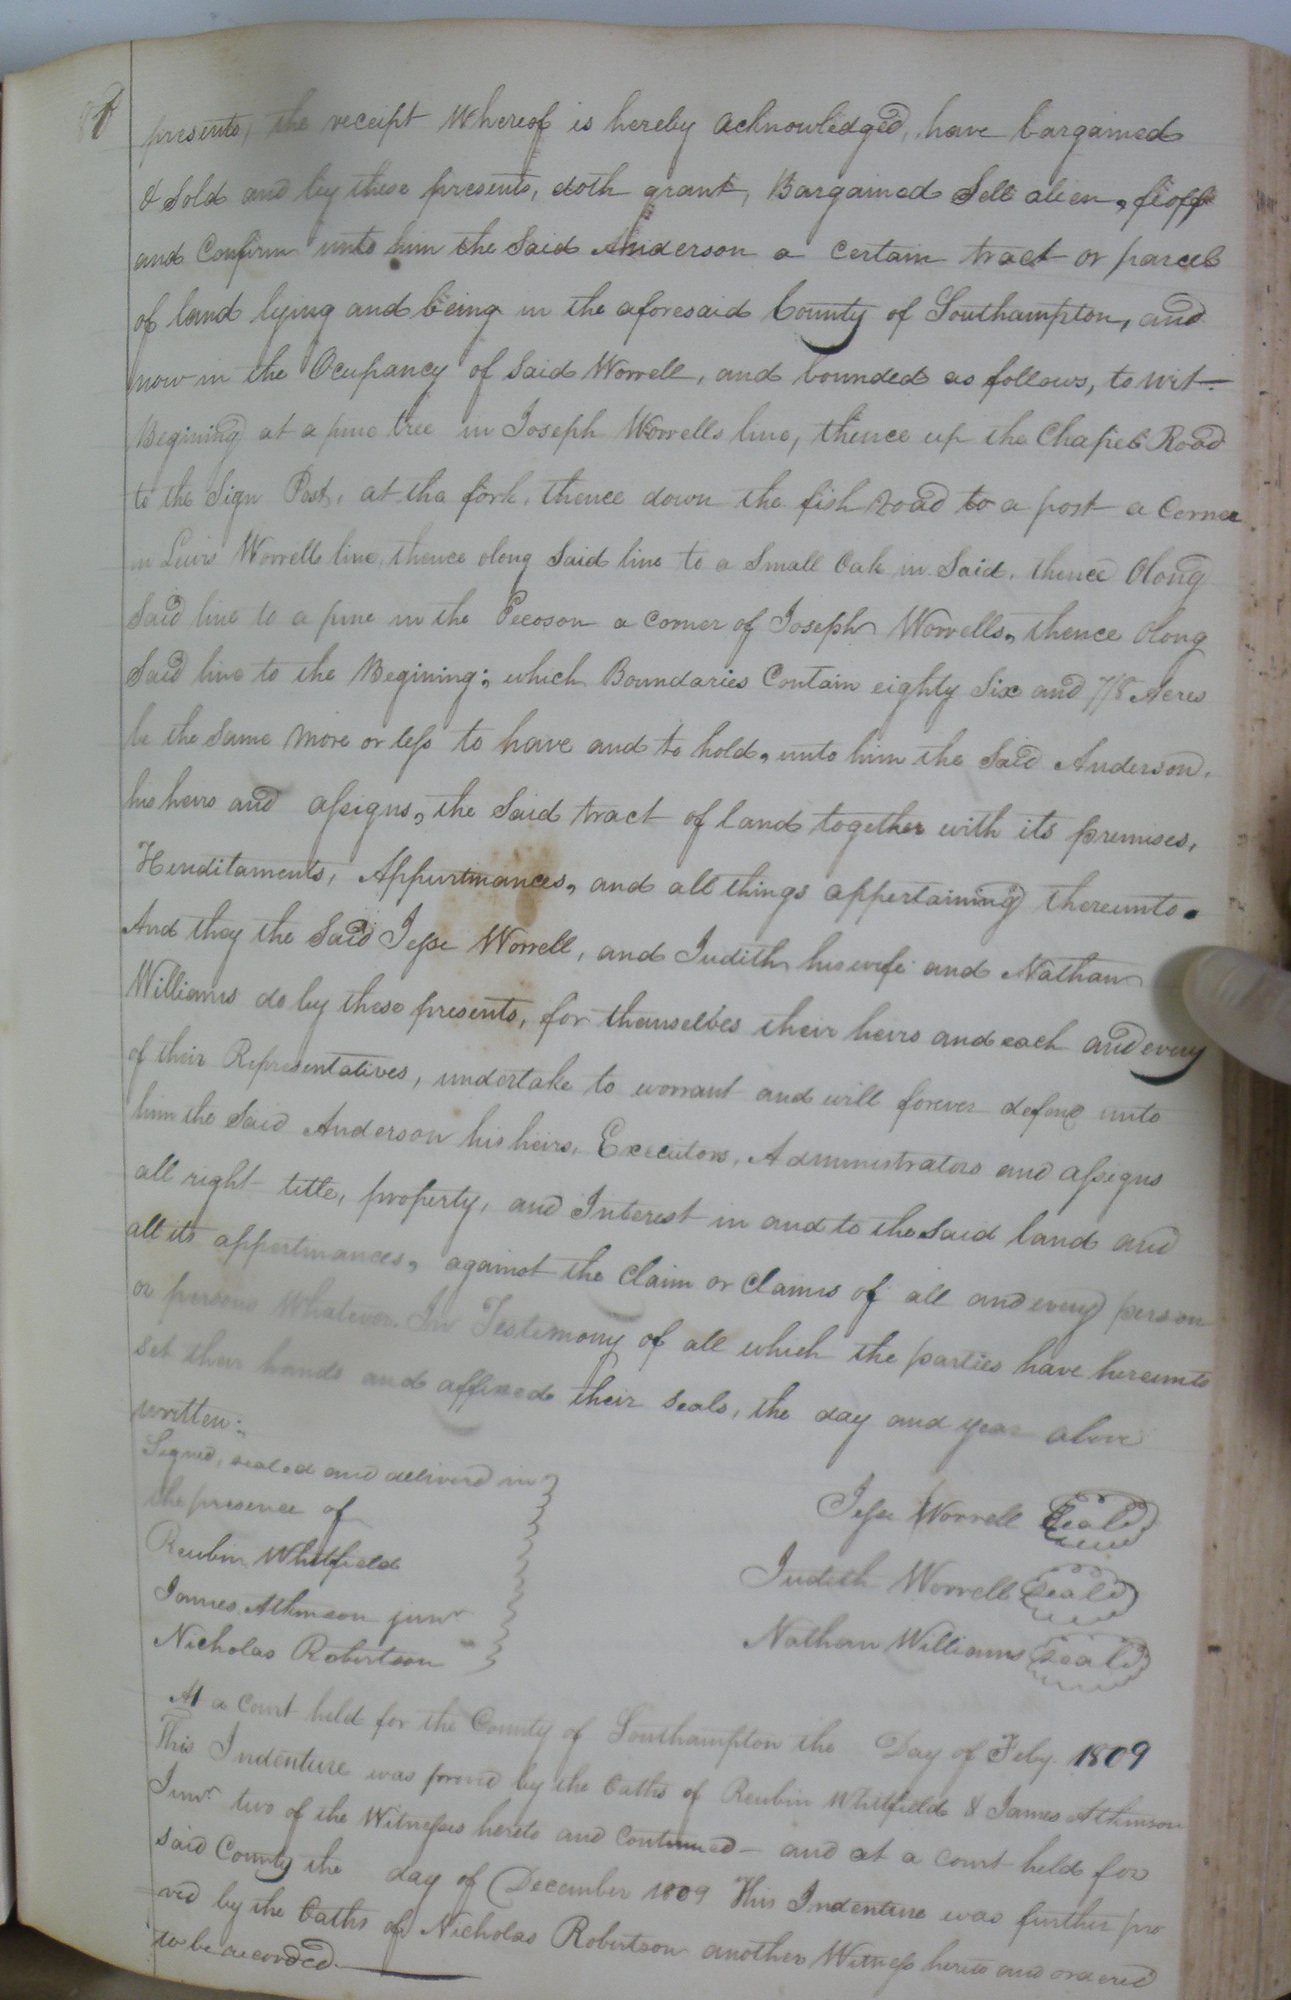 presents, the receipt Whereof is hereby acknowledged, have bargained
& Sold and by these presents, doth grant, Bargained Sell alien, feoff
and Confirm unto him the Said Anderson a certain tract or parcel
of land lying and being in the aforesaid County of Southampton, and
now in the Ocupancy of Said Worrell, and bounded as follows, to wit—
Begining at a pine tree in Joseph Worrells line, thence up the Chapel Road
to the Sign Post, at the fork, thence down the fish road to a post a Corner
in Lewis Worrells line, thence along Said line to a Small Oak in Said, thence along
Said line to a pine in the Pecoson a corner of Joseph Worrells, thence along
Said line to the Begining; which Boundaries Contain eighty Six and 7/8 Acres
be the Same more or less to have and to hold, unto him the Said Anderson,
his heirs and assigns, the Said tract of land together with its premises,
Hereditaments, Appurtinances, and all things appertaining thereunto.
And they the Said Jesse Worrell, and Judith his wife and Nathan
Williams do by these presents, for themselves their heirs and each and every
of their Representatives, undertake to worrant and will forever defend unto
him the Said Anderson his heirs, Executors, Administrators and assigns
all right title, property, and Interest in and to the Said land and
all its appertinances, against the claim or claims of all and every person
or persons Whatever. In Testimony of all which the parties have hereunto
set their hands and affixed their seals, the day and year above
written:
Signed, sealed and deliverd in
the presence of
Reubin Whitfield
James Atkinson junr
Nicholas Robertson
Jesse Worrell Seal
Judith Worrell Seal
Nathan Williams Seal
At a Court held for the County of Southampton the Day of Feby. 1809
This Indenture was proved by the Oaths of Reubin Whitfield & James Atkinson
Junr two of the Witnesses hereto and Continued— and at a court held for
said County the day of December 1809 This Indenture was further pro
ved by the Oaths of Nicholas Robertson another Witness hereto and ordered
to be recorded.